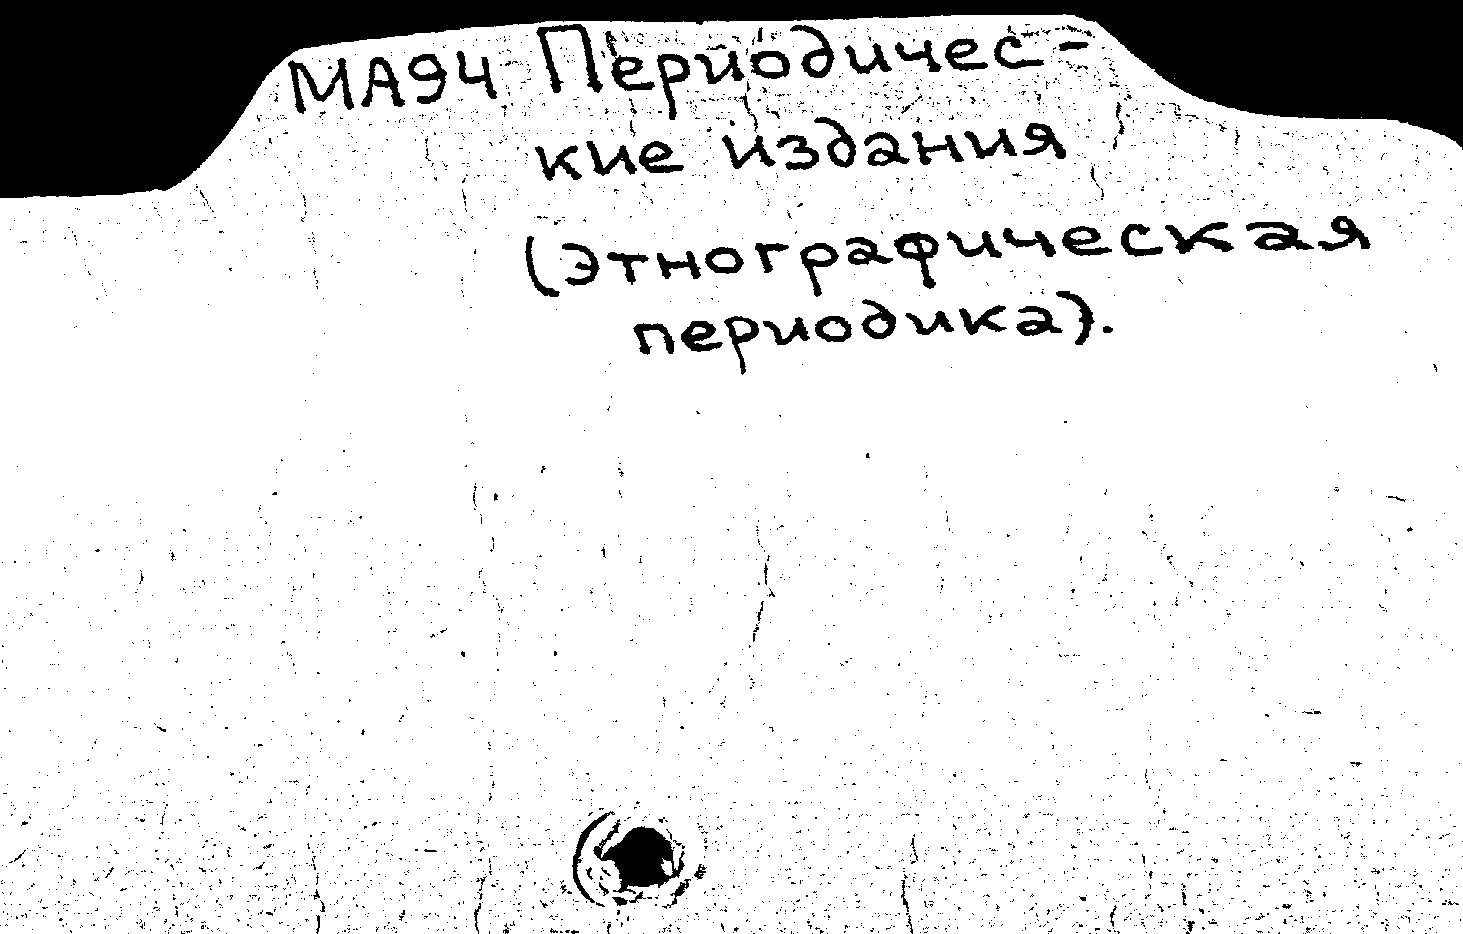 МА94 Периодичес-
кие издания
(этнографическая
периодика).